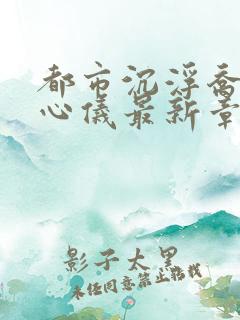 都市沉浮乔
心仪最新章
影子太黑
未经同意禁止转载